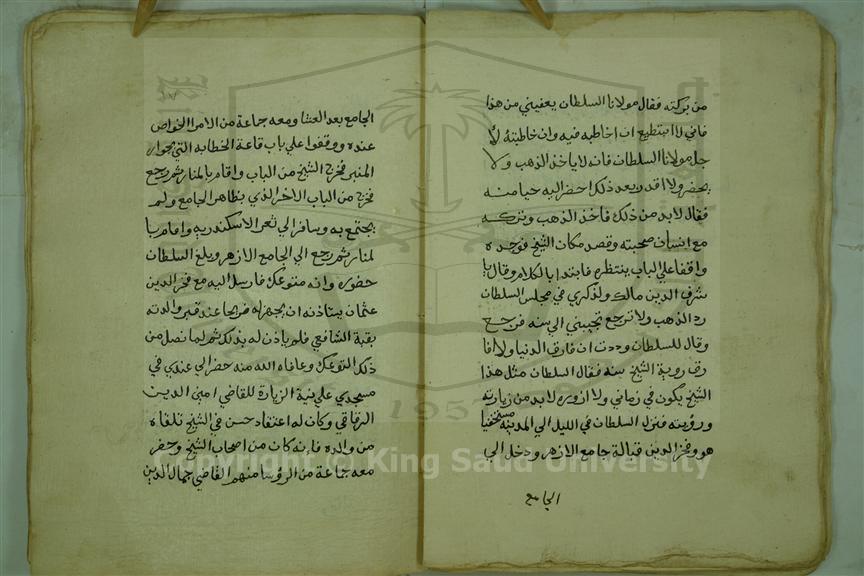 من بركته فقال مولانا السلطان يعفيني من هذا
فاني لا استطيع ان اخاطبه فيه وان خاطبته لأ
جل مولانا السلطان فانه لا ياخذ الذهب ولا
يحضر ولا اقدر بعد ذلك احضر اليه حيا منه
فقال لابد من ذلك فاخذ الذهب وتركه
مع انسان صحبته وقصد مكان الشيخ فوجده
واقفا علي الباب ينتظره فابتدا بالكلام وقال يا
شرف الدين مالك ولذكري في مجلس السلطان
رد الذهب ولا ترجع تجيبني الي سنه فرجع
وقال للسلطان وددت ان فارق الدنيا ولا افا
رق روية الشيخ سنه فقال السلطان مثل هذا
الشيخ يكون في زماني ولا ازوره لابد من زيارته
ورؤيته فنزل السلطان في الليل الي المدينه مستخفيا
هو وفخر الدين قبالة جامع الازهر ودخل الي
الجامع
الجامع بعد العشا ومعه جماعة من الامرا الخواص
عنده ووقفوا علي باب قاعة الخطابه التي بجوار
المنبر فخرج الشيخ من الباب واقام بالمنار ثم رجع
فخرج من الباب الاخر الذي بظاهر الجامع ولم
يجتمع به وسافر الي ثغر الاسكندريه واقام با
لمنار ثم رجع الي الجامع الازهر وبلغ السلطان
حضوره وانه متوعك فارسل اليه مع فخر الدين
عثمان يستاذنه ان يجهز له ضريحا عند قبر والدته
بقبة الشافعي فلم ياذن له بذلك ثم لما نصل من
ذلك التوعك وعافاه الله منه حضر الي عندي في
مسجدي علي نية الزيارة للقاضي امين الدين
الرقاقي وكان له اعتقاد حسن في الشيخ تلقاه
من والده فانه كان من اصحاب الشيخ وحضر
معه جماعة من الرؤسا منهم القاضي جمال الدين
Copyright © King Saud University
1957